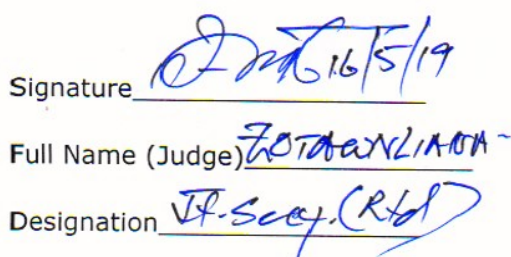 Signature 16/5/19
Full Name (Judge) ZOTAWNLIANA
Designation Jt. Secy. (Rtd)